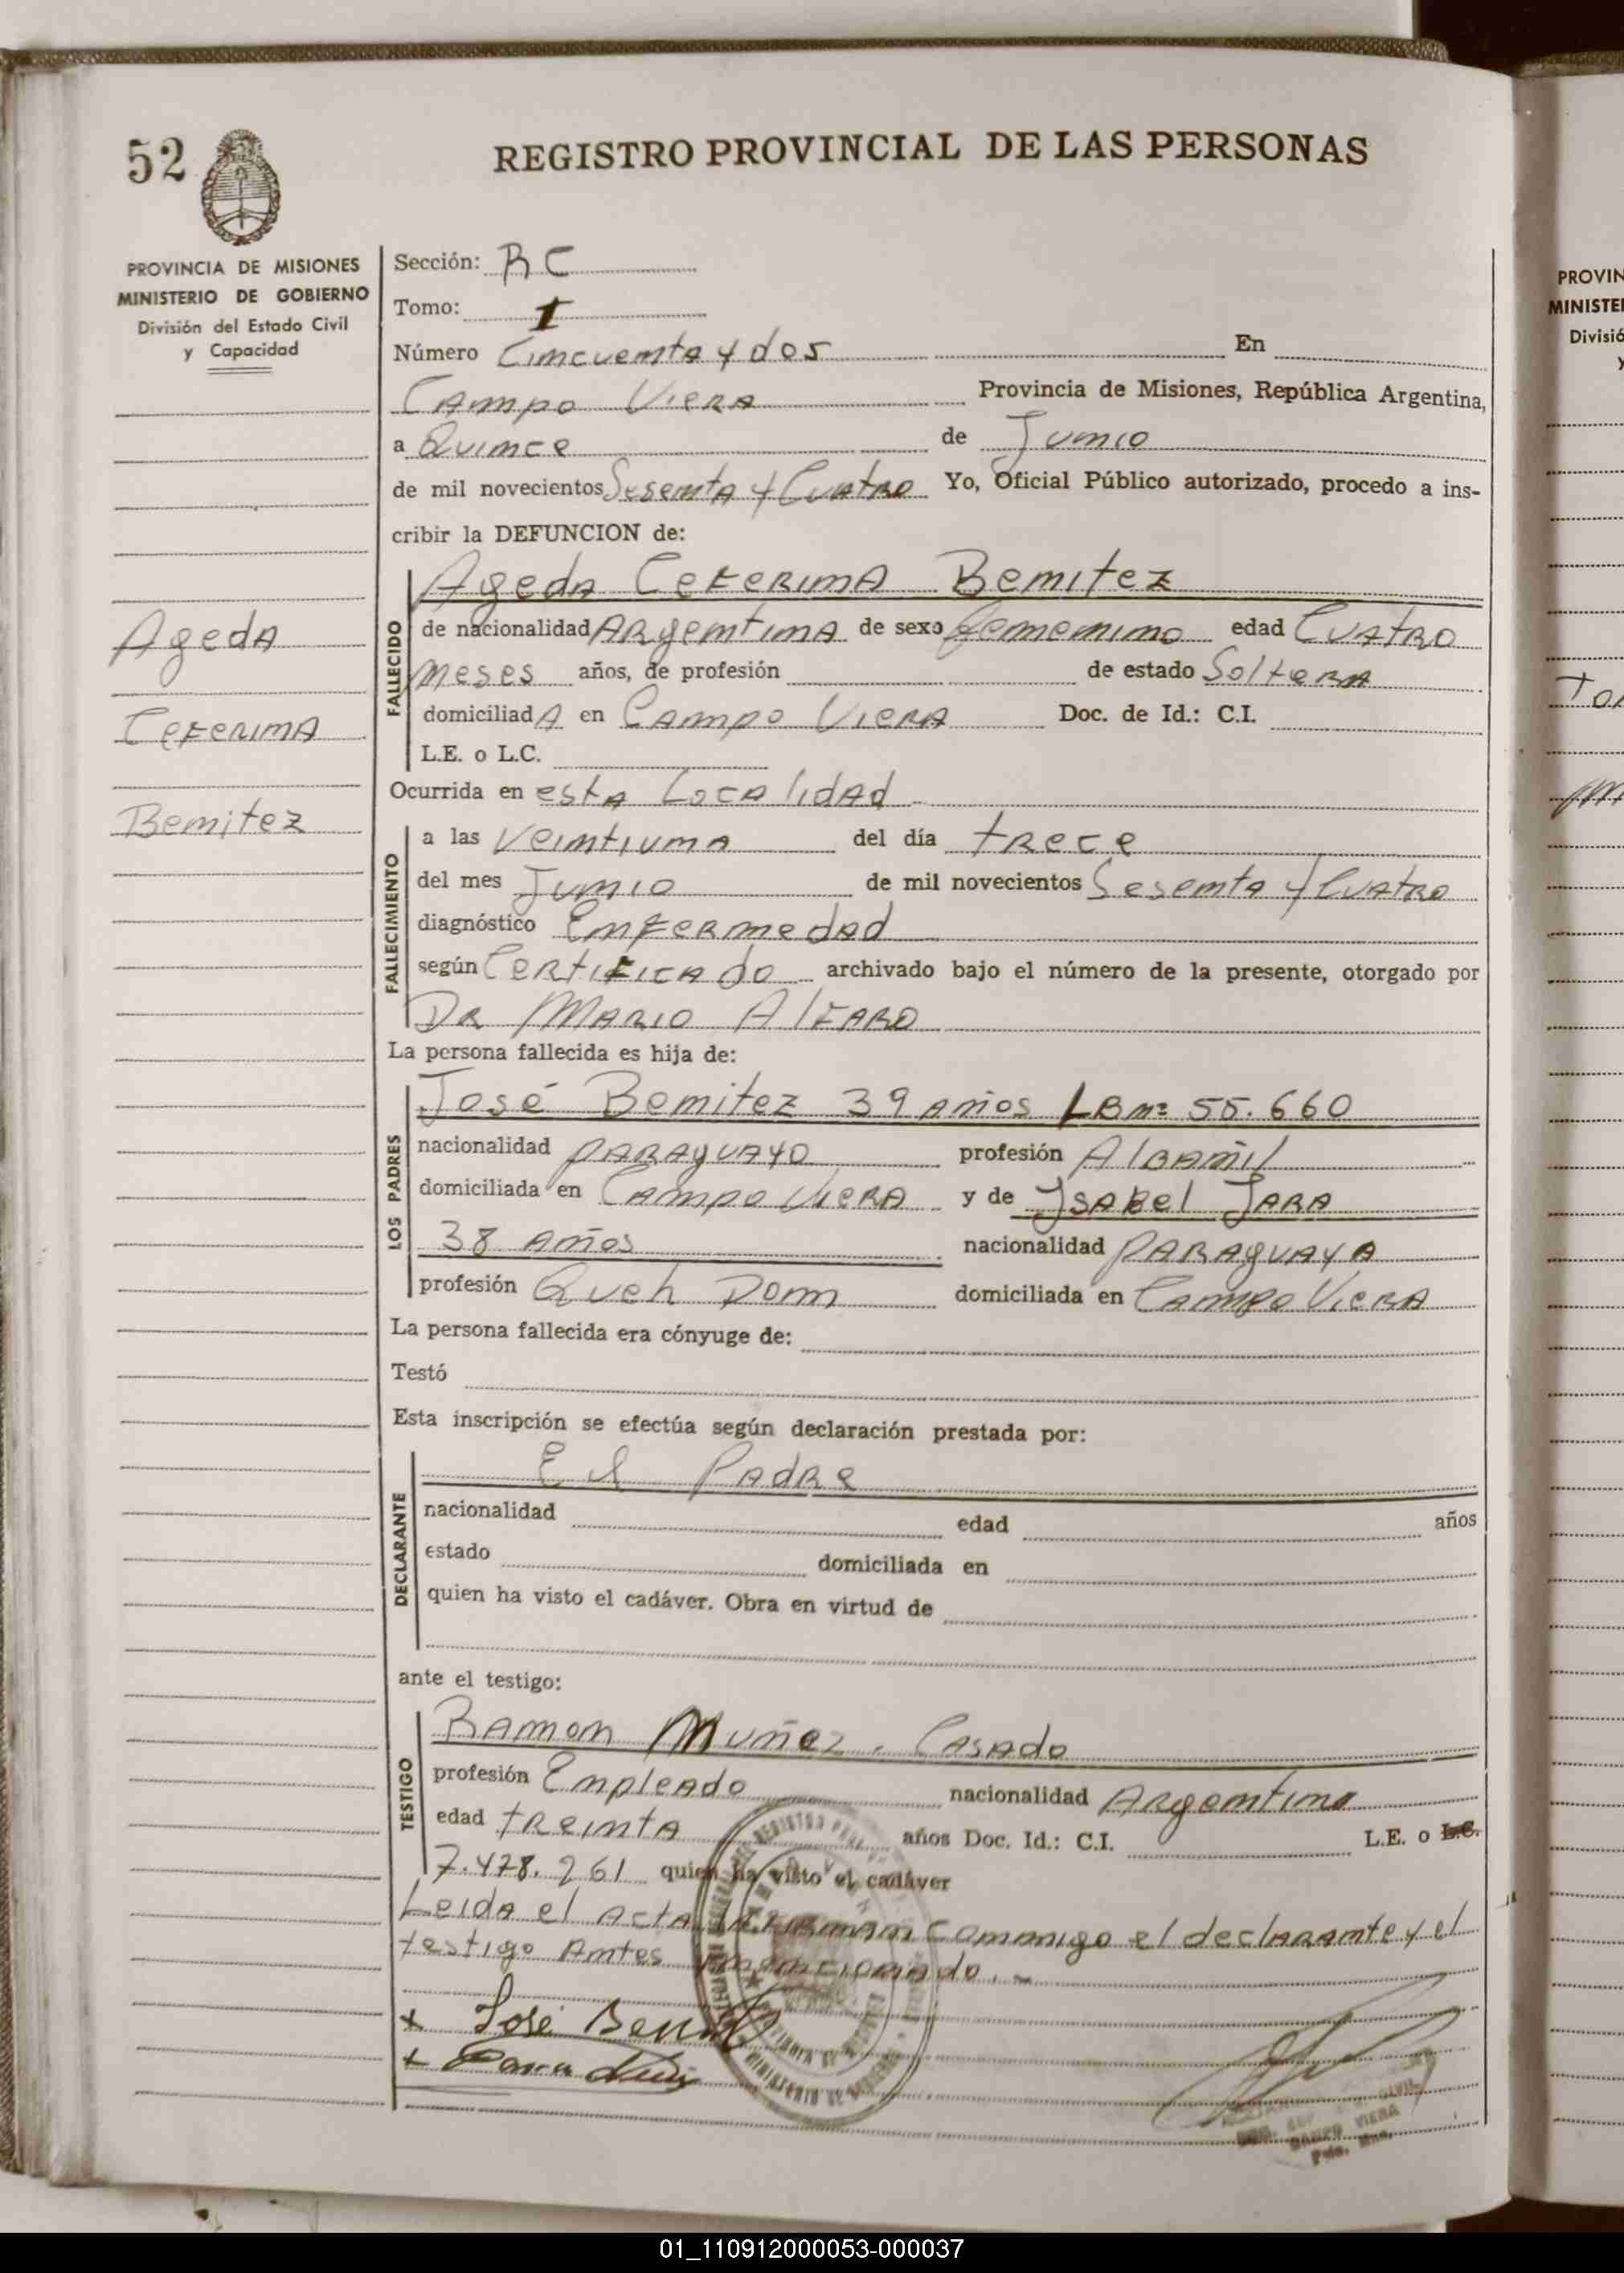 52
REGISTRO PROVINCIAL DE LAS PERSONAS
PROVINCIA DE MISIONES
MINISTERIO DE GOBIERNO
División del Estado Civil
y Capacidad
Sección: RC
Tomo: 1
Número Cincuenta y dos En
Campo Viera Provincia de Misiones, República Argentina,
a Quince de Junio
de mil novecientos Sesenta y Cuatro Yo, Oficial Público autorizado, procedo a ins-
cribir la DEFUNCION de:
Ageda Ceferina Benitez
FALLECIDO
de nacionalidad Argentina de sexo femenino edad Cuatro
Ageda
meses años, de profesión de estado Soltera
domiciliada en Campo Viera Doc. de Id.: C.I.
Ceferina
L.E. o L.C.
Ocurrida en esta Localidad
Benitez
FALLECIMIENTO
a las Veintiuna del día trece
del mes Junio de mil novecientos Sesenta y Cuatro
diagnóstico Enfermedad
según Certificado archivado bajo el número de la presente, otorgado por
Dr Mario Alfaro
La persona fallecida es hija de:
LOS PADRES
José Benitez 39 años LB nº 55.660
nacionalidad paraguayo profesión Albañil
domiciliada en Campo Viera y de Ysabel Jara
38 años nacionalidad paraguaya
profesión Queh Dom domiciliada en Campo Viera
La persona fallecida era cónyuge de:
Testó
Esta inscripción se efectúa según declaración prestada por:
DECLARANTE
El Padre
nacionalidad edad años
estado domiciliada en
quien ha visto el cadáver. Obra en virtud de
ante el testigo:
TESTIGO
Ramon Muñez. Casado
profesión Empleado nacionalidad Argentino
edad treinta años Doc. Id.: C.I. L.E. o L.C.
7.478.261 quien ha visto el cadáver
Leida el acta firman conmigo el declarante y el
testigo antes mencionado.-
+ José Benitez
+
CAMPO VIERA
Pcia. Mnes.
PROVIN
MINISTE
Divisió
y
01_110912000053-000037